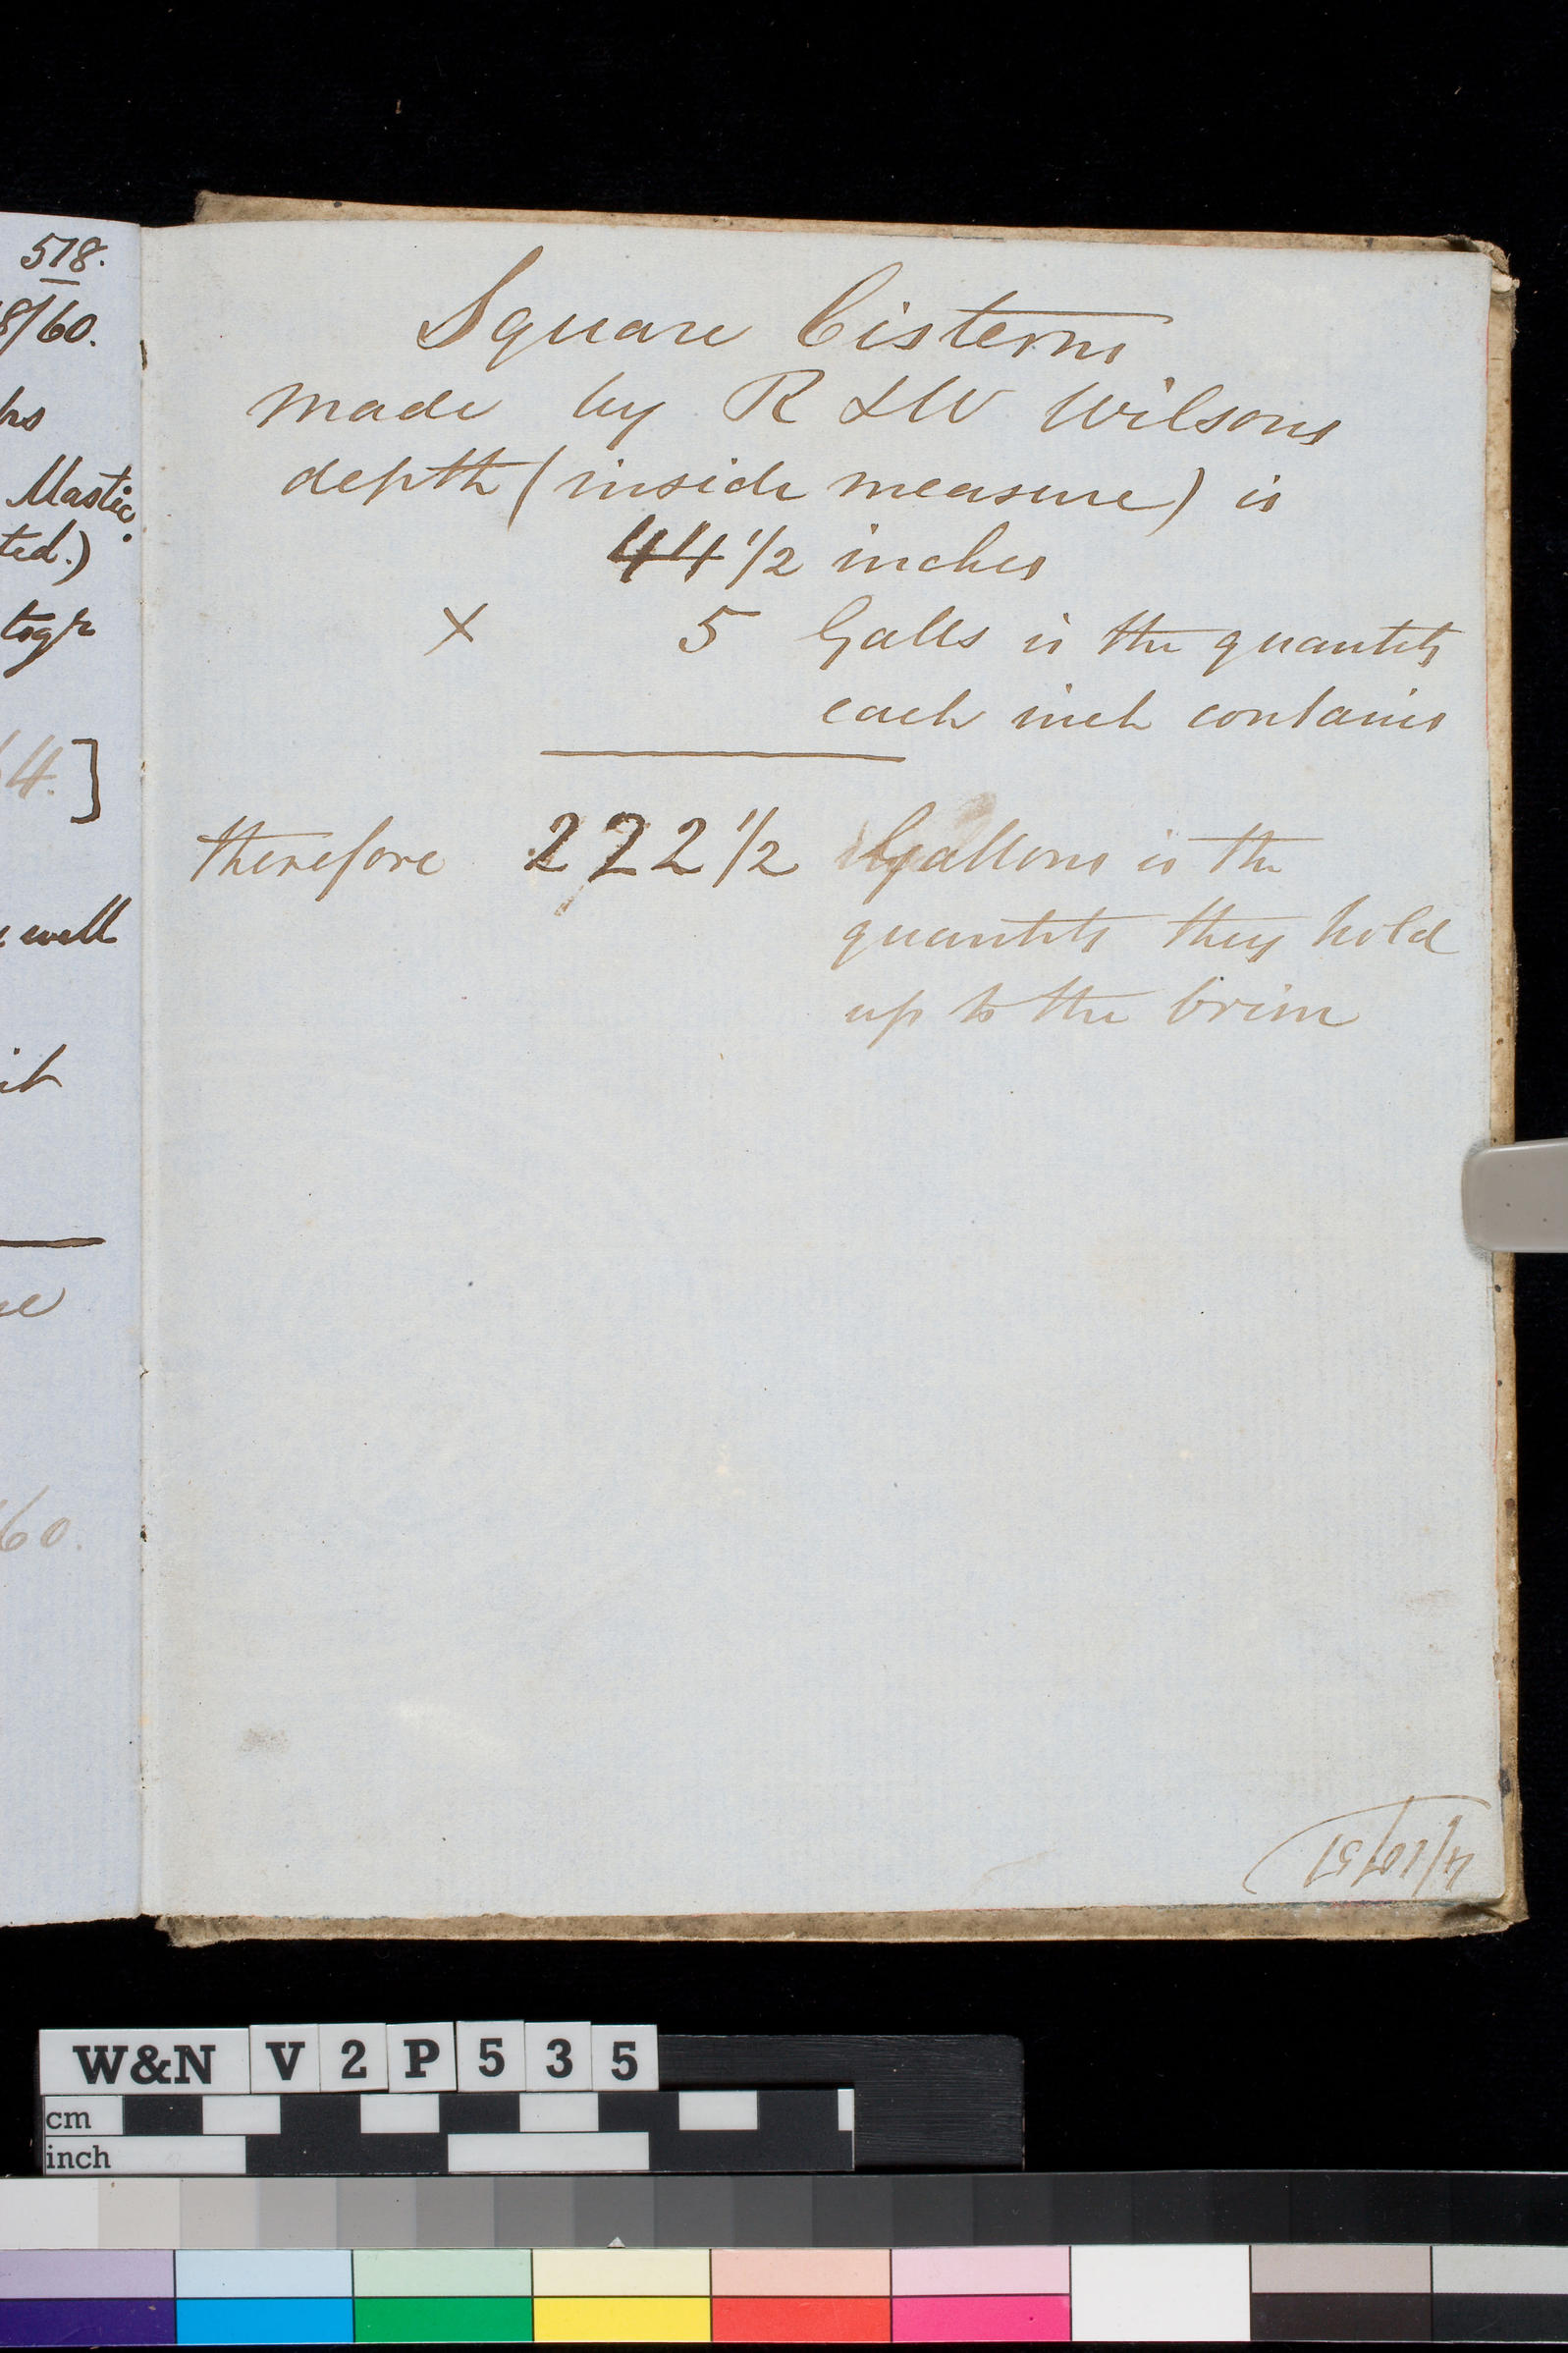 518.
8/60.
Mastic.
ted.)
togr
4.]
well
it
60.
Square Cisterns
made by R & W Wilsons
depth (inside measure) is
44 1/2 inches
× 5 Galls is the quantity
each inch contains
therefore 222 1/2 Gallons is the
quantity they hold
up to the brim
4/10/51
W&N V2P535
cm
inch